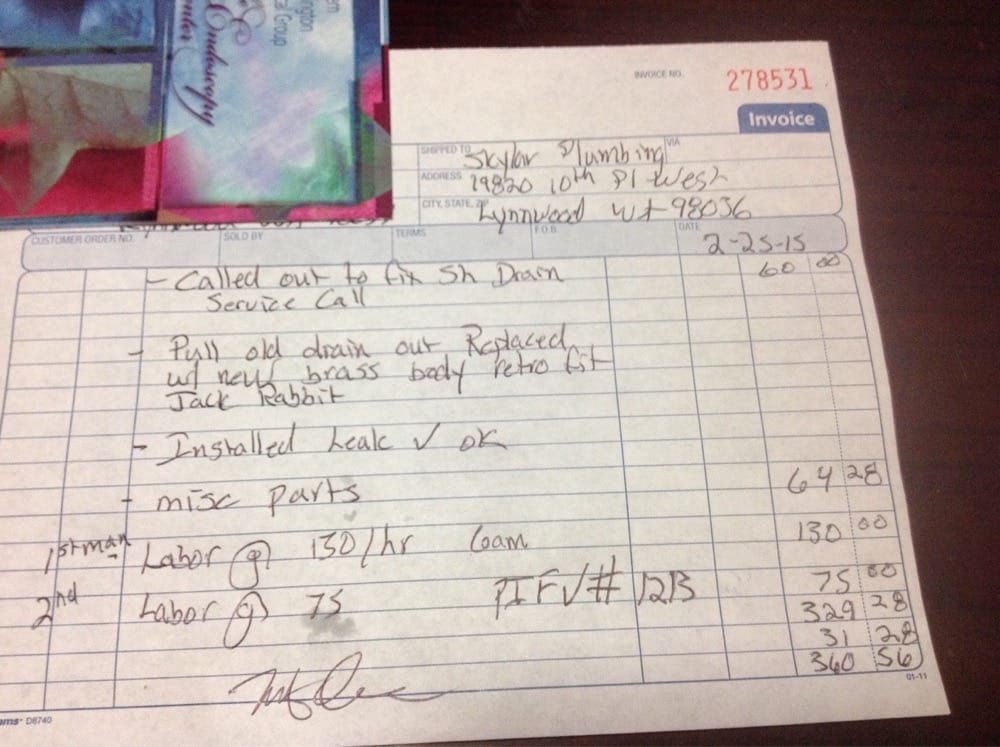 Endoscopy
INVOICE NO. 278531
Invoice
SHIPPED TO Skylar Plumbing VIA
ADDRESS 19820 10th Pl West
CITY, STATE, ZIP Lynnwood WA 98036
CUSTOMER ORDER NO. SOLD BY TERMS F.O.B. DATE 2-25-15
- Called out to fix Sh Drain 60 00
Service Call
- Pull old drain out Replaced
w/ new brass body retro fit
Jack Rabbit
- Installed Leak ✓ ok
- misc parts 64 28
1st man Labor @ 130/hr 130 00
2nd Labor @ 75 75 00
329 28
31 28
360 56
01-11
D8740